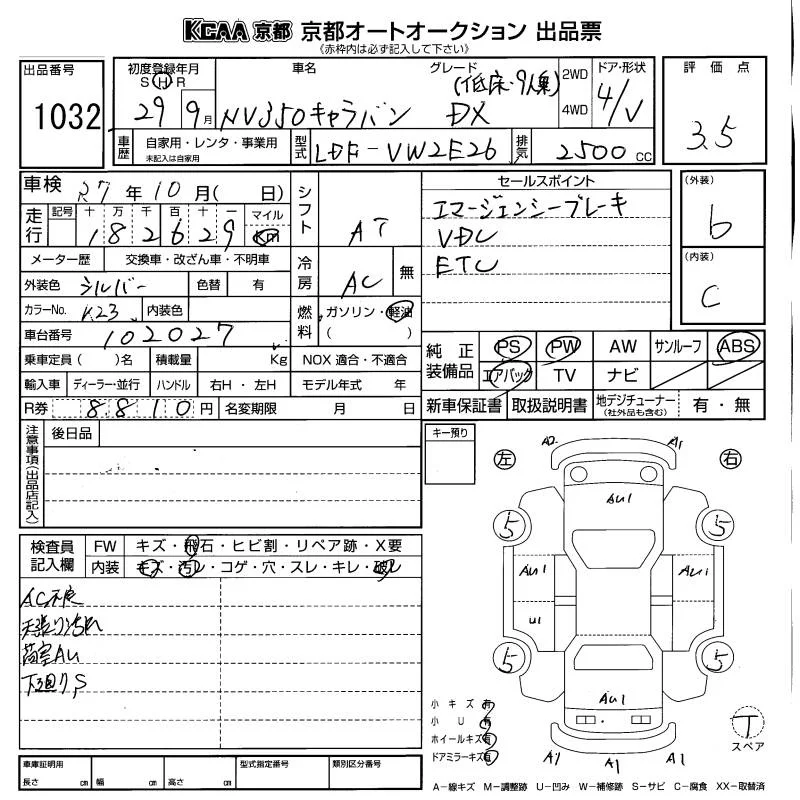 KCAA 京都 京都オートオークション 出品票
《赤枠内は必ず記入して下さい》
出品番号
1032
初度登録年月
S H R
29 9月
車名
NV350キャラバン
グレード
(低床・9人乗)
DX
2WD
4WD
ドア・形状
4/V
評価点
3.5
車歴
自家用・レンタ・事業用
未記入は自家用
型式
LDF-VW2E26
排気
2500 CC
車検 R7年10月(日)
走行
記号 十 万 千 百 十 一 マイル
182629 Km
メーター歴 交換車・改ざん車・不明車
外装色 シルバー 色替 有
カラーNo. K23 内装色
車台番号 102027
乗車定員( )名 積載量 Kg
輸入車 ディーラー・並行 ハンドル 右H・左H
R券 8810円 名変期限 月 日
シフト AT
冷房 AC 無
燃料 ガソリン・軽油
( )
NOX 適合・不適合
モデル年式 年
セールスポイント
エマージェンシーブレーキ
VDC
ETC
(外装)
b
(内装)
C
純正装備品
PS PW AW サンルーフ ABS
エアバック TV ナビ
新車保証書 取扱説明書 地デジチューナー
(社外品も含む)
有・無
注意事項(出品店記入)
後日品
キー預り
検査員記入欄
FW キズ・飛石・ヒビ割・リペア跡・X要
内装 キズ・汚れ・コゲ・穴・スレ・キレ・破れ
AC不良
天張り汚れ
荷室AU
下廻りS
左
右
A2
A1
AU1
5
5
AU1
AU1
U1
5
5
AU1
A1
A1
A1
小キズ有
小U有
ホイールキズ有
ドアミラーキズ有
T
スペア
車庫証明用
長さ cm 幅 cm 高さ cm
型式指定番号
類別区分番号
A-線キズ M-調整跡 U-凹み W-補修跡 S-サビ C-腐食 XX-取替済